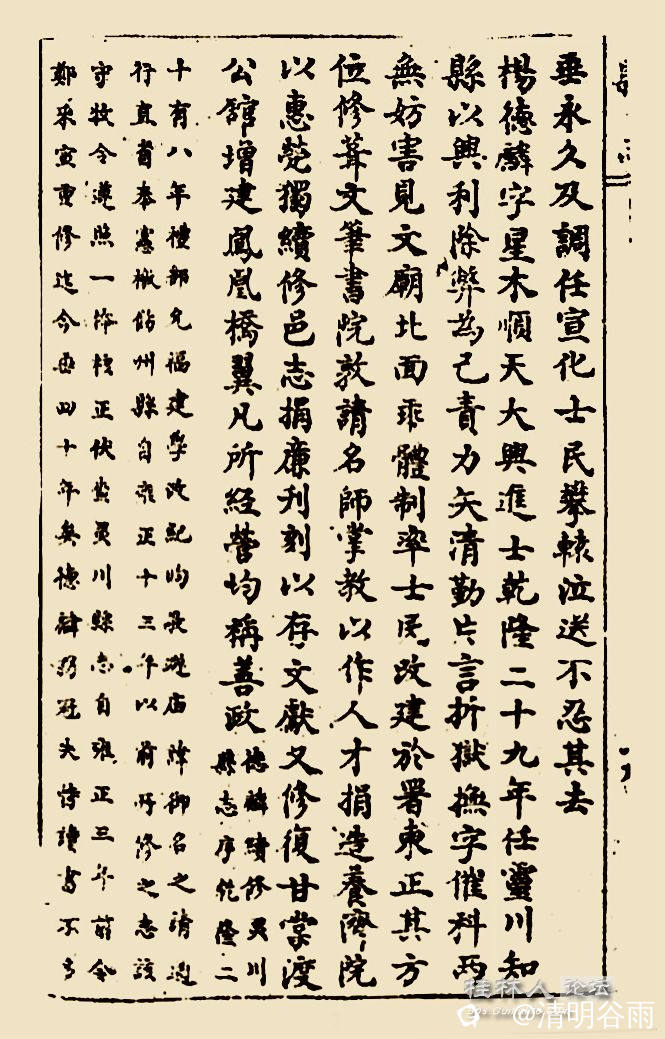 垂永久及調任宣化士民攀轅泣送不忍其去
楊德麟字星木順天大興進士乾隆二十九年任靈川知
縣以興利除弊為己責力矢清勤片言折獄撫字催科兩
無妨害見文廟北面乖體制率士民改建於署東正其方
位修葺文筆書院敦請名師掌教以作人才捐造養濟院
以惠煢獨續修邑志捐廉刋刻以存文獻又修復甘棠渡
公舘增建鳳凰橋翼凡所經營均稱善政
德麟續修灵川
縣志序乾隆二
十有八年禮部允福建學政紀均 廟諱御名之請通
行直省奉憲檄飭州縣自雍正十三年以前所修之志該
守牧令遵照一 校正伏 灵川縣志自雍正三年前令
鄭采宣重修迄今四十年矣德麟 冠失恃讀書不
桂林人论坛
@清明谷雨